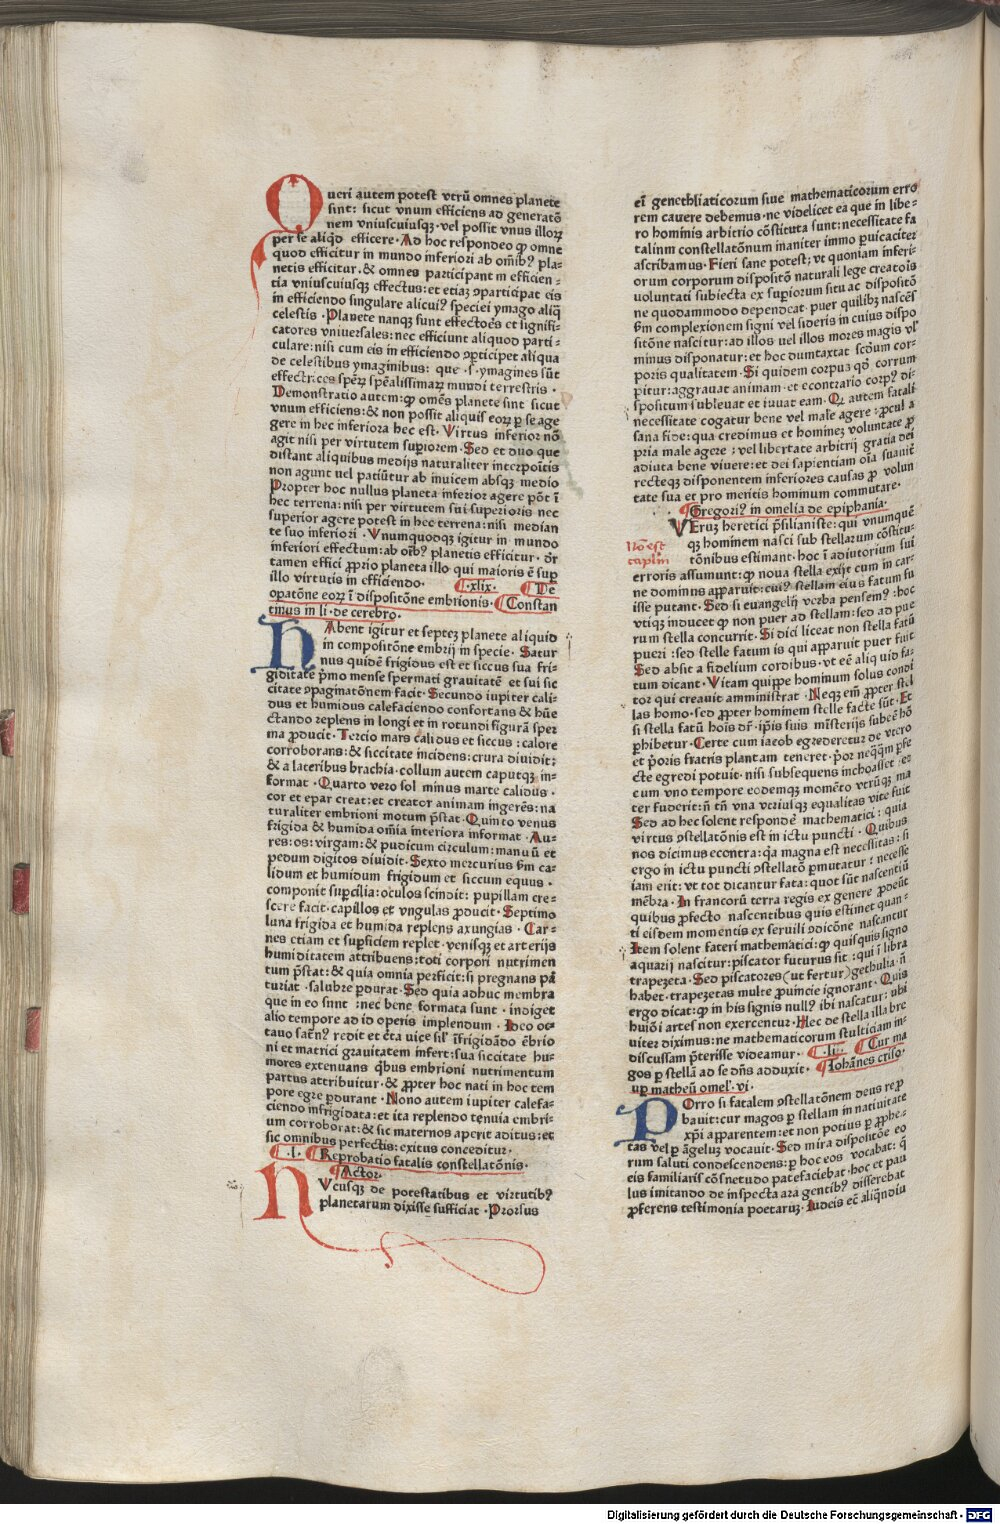 Queri autem potest vtrū omnes planete
sint: sicut vnum efficiens ad generatōē
nem vniuscuiusqꝫ·vel possit vnus illoꝝ
per se aliqd efficere·Ad hoc respondeo ꝙ omne
quod efficitur in mundo inferiori ab om̄ibꝰ pla⸗
netis efficitur·& omnes participant in efficien⸗
tia vniuscuiusqꝫ effectus: et etiaꝫ ꝯparticipat eis
in efficiendo singulare alicuiꝰ speciei ymago aliq̄
celestis·Planete nanqꝫ sunt effectoēs et signifi⸗
catores vniuersales: nec efficiunt aliquod parti⸗
culare: nisi cum eis in efficiendo ꝯparticipet aliqua
de celestibus ymaginibus: que·s·ymagines sūt
effectrices sperꝝ spēalissimaꝝ mundi terrestris·
Demonstratio autem: ꝙ omēs planete sint sicut
vnum efficiens: & non possit aliquis eoꝝ ꝑ se age
gere in hec inferiora hec est·Virtus inferior nō
agit nisi per virtutem suꝑiorem·Sed et duo que
distant aliquibus medijs naturaliter interpoītis
non agunt uel patiūtur ab inuicem absqꝫ medio
Propter hoc nullus planeta inferior agere pōt ī
hec terrena: nisi per virtutem sui superioris nec
superior agere potest in hec terrena: nisi median
te suo inferiori·Vnumquodqꝫ igitur in mundo
inferiori effectum: ab oībꝰ planetis efficitur·dr̄
tamen effici ꝓprio planeta illo qui maioris ē suꝑ
illo virtutis in efficiendo· ¶·xlix· ¶De
opatōne eoꝝ ī dispositōne embrionis·¶Constan
tinus in li·de cerebro·
HAbent igitur et septeꝫ planete aliquid
in compositōne embrij in specie·Satur
nus quidē frigidus est et siccus sua fri⸗
giditate pͥmo mense spermati grauitatē et sui sic
citate ꝯpaginatōnem facit·Secundo iupiter cali⸗
dus et humidus calefaciendo confortans & hūe
ctando replens in longi et in rotundi figurā sper
ma ꝓducit·Tercio mars calidus et siccus: calore
corroborans: & siccitate incidens: crura diuidit:
& a lateribus brachia·collum autem caputqꝫ in⸗
format·Quarto vero sol minus marte calidus·
cor et epar creat: et creator animam ingerēs: na
turaliter embrioni motum pͥstat·Quinto venus
frigida & humida om̄ia interiora informat·Au⸗
res: os: virgam: & pudicum circulum: manuū et
pedum digitos diuidit·Sexto mercurius ẜm ca⸗
lidum et humidum frigidum et siccum equus·
componit suꝑcilia: oculos scindit: pupillam cre⸗
scere facit·capillos et vngulas ꝓducit·Septimo
luna frigida et humida replens axungias·Car⸗
nes etiam et suꝑficiem replet·venisqꝫ et arterijs
humiditatem attribuens: toti corpori nutrimen
tum pͥstat: & quia omnia perficit: si pregnans pā
turiat·salubre ꝑdurat·Sed quia adhuc membra
que in eo sunt: nec bene formata sunt·indiget
alio tempore ad id operis implendum·Ideo oc⸗
tauo satꝰnꝰ redit et cͣta uice sil' īfrigidādo ēbrio
ni et matrici grauitatem infert: sua siccitate hu⸗
mores extenuans qͥbus embrioni nutrimentum
partus attribuitur·& ꝓpter hoc nati in hoc tem
pore egre ꝑdurant·Nono autem iupiter calefa⸗
ciendo infrigidata: et ita replendo tenuia embri⸗
um corroborat: & sic maternos aperit aditus: et
sic omnibus perfectis: exitus conceditur·
¶·l· ¶Reprobatio fatalis constellatōnis·
¶Actor·
HVcusqꝫ de potestatibus et virtutibꝰ
planetarum dixisse sufficiat·Prorsus
eī genethliaticorum siue mathematicorum erro
rem cauere debemus·ne videlicet ea que in libe⸗
ro hominis arbitrio cōstituta sunt: necessitate fa
talium constellatōnum inaniter immo ꝑuicaciter
ascribamus·Fieri sane potest; vt quoniam inferi⸗
orum corporum dispositō naturali lege creatoīs
voluntati subiecta ex suꝑiorum situ ac dispositō
ne quodammodo dependeat·puer quilibꝫ nascēs
ẜm complexionem signi vel sideris in cuius dispo
sitōne nascitur: ad illos uel illos mores magis vl'
minus disponatur: et hoc dumtaxat scd̄um cor⸗
poris qualitatem·Si quidem corpus qd̄ corrum
pitur: aggrauat animam·et econtrario corpꝰ di⸗
spositum subleuat et iuuat eam·Qꝫ autem fatali
necessitate cogatur bene vel male agere: ꝓcul a
sana fide: qua credimus et homineꝫ voluntate ꝓ
pria male agere: vel libertate arbitrij gratia dei
adiuta bene viuere: et dei sapientiam oīa suauit̄
recteqꝫ disponentem inferiores causas ꝓ volun
tate sua et pro meritis hominum commutare·
¶Gregoriꝰ in omelia de epiphania·
VEruꝫ heretici pͥsilianiste: qui vnumquē
qꝫ hominem nasci sub stellarum cōstitu⸗
Nō est
capl'm
tōnibus estimant·hoc ī adiutorium sui
erroris assumunt: ꝙ noua stella exijt cum in car⸗
ne dominus apparuit: cuiꝰ stellam eius fatum fu
isse putant·Sed si euangelij verba pensemꝰ: hoc
vtiqꝫ inducet ꝙ non puer ad stellam: sed ad pue
rum stella concurrit·Si dici liceat non stella fatū
pueri: sed stelle fatum is qui apparuit puer fuit
Sed absit a fidelium cordibus·vt eē aliquid fa⸗
tum dicant·Vitam quippe hominum solus condi
tor qui creauit amministrat·Neqꝫ em̄ ꝓpter stel
las homo·sed ꝓpter hominem stelle facte sūt·Et
si stella fatū hoīs dr̄·ip̄is suis mīsterijs subeē hō
ꝑhibetur·Certe cum iacob egrederetur de vtero
et pͥoris fratris plantam teneret·pͥor neq̄qm̄ ꝑfe
cte egredi potuit·nisi subsequens inchoasset·et
cum vno tempore eodemqꝫ momēto vtrūqꝫ ma
ter fuderit: n̄ tn̄ vna vtriusqꝫ equalitas vite fuit
Sed ad hec solent respondē mathematici: quia
virtus ꝯstellatōnis est in ictu puncti·Quibus
nos dicimus econtra: qͣ magna est necessitas: si
ergo in ictu puncti ꝯstellatō ꝑmutatur: necesse
iam erit: vt tot dicantur fata: quot sūt nascentiū
mēbra·In francorū terra regis ex genere ꝓdeūt
quibus ꝓfecto nascentibus quis estimet quan⸗
ti eisdem momentis ex seruili ꝯdicōne nascantur
Item solent fateri mathematici: ꝙ quisquis signo
aquarij nascitur: piscator futurus sit: qui ī libra
trapezeta·Sed piscatores (ut fertur) gethulia·n̄
habet·trapezetas multe ꝓuincie ignorant·Quis
ergo dicat: ꝙ in his signis nullꝰ ibi nascatur: ubi
huiōi artes non exercentur·Hec de stella illa bre
uiteꝫ diximus: ne mathematicorum stulticiam in⸗
discussam pͥterisse videamur·¶·li· ¶Cur ma
gos ꝑ stellā ad se dn̄s adduxit· ¶Iohānes criso·
uꝑ matheū omel'·vi·
POrro si fatalem ꝯstellatōnem deus reꝓ
bauit: cur magos ꝑ stellam in natiuitate
xp̄i apparentem: et non potius ꝑ ꝓphe⸗
tas vel ꝑ āgeluꝫ vocauit·Sed mira dispositōe eo
rum saluti condescendens: ꝑ hoc eos vocabat: q̄
eis familiaris cōs̄netudo patefaciebat·hoc et pau
lus imitando de inspecta ara gentibꝰ disserebat
ꝓferens testimonia poetaruꝫ·Iudeis eē aliqn̄diu
Digitalisierung gefördert durch die Deutsche Forschungsgemeinschaft - DFG